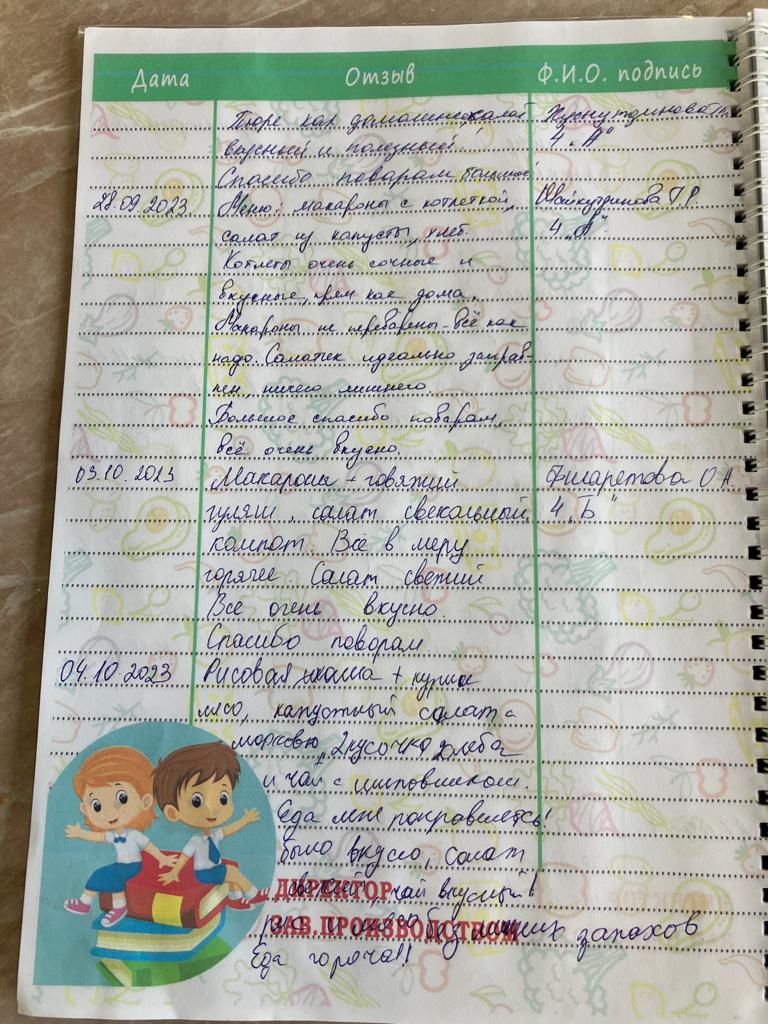 Дата Отзыв Ф.И.О. подпись
Пюре как домашнее,
вкусный и полезный! 4 „А"
Спасибо поварам большое!
28.09.2023 Меню: макароны с котлеткой,
салат из капусты, хлеб. 4 „А"
Котлеты очень сочные и
вкусные, прям как дома.
Макароны не переварены - всё как
надо. Салатик идеально заправ-
лен, ничего лишнего.
Большое спасибо поварам,
всё очень вкусно.
03.10.2023 Макароны + говяжий Филаретова О.А.
гуляш, салат свекольный, 4 „Б"
компот. Все в меру
горячее. Салат свежий
Все очень вкусно.
Спасибо поворам.
04.10.2023 Рисовая каша + куриное
мясо, капустный салат с
морковью, 2 кусочка хлеба
и чай с шиповником.
Еда мне понравилась!
было вкусно, салат
свежий, чай вкусный!
ДИРЕКТОР
рис и мясо без лишних запахов
ЗАВ.ПРОИЗВОДСТВОМ
Еда горяча!!